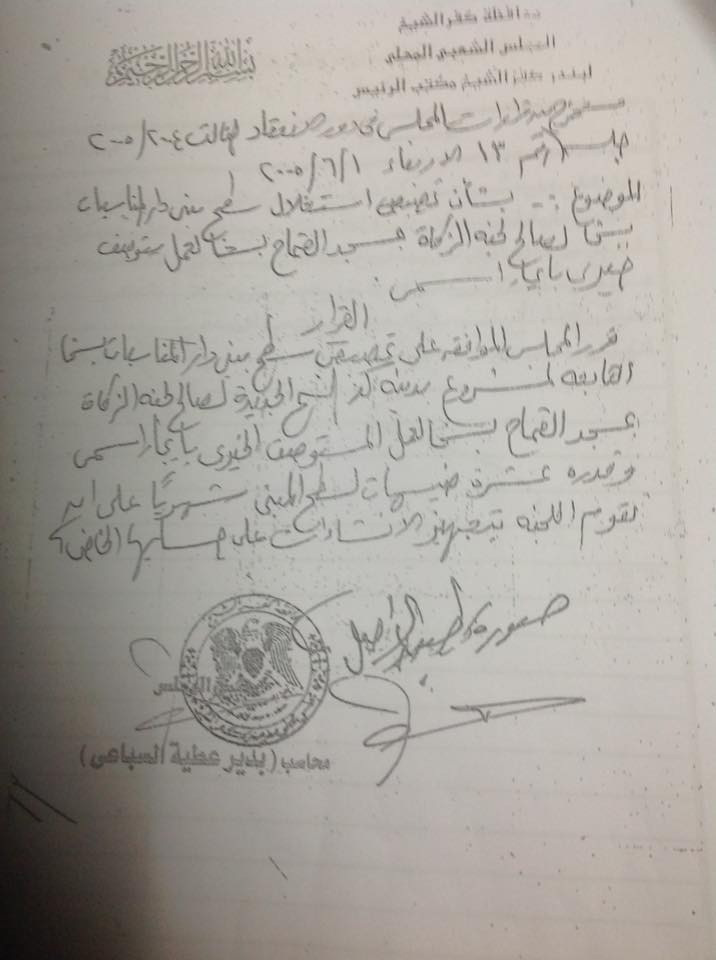 محافظة كفر الشيخ
المجلس الشعبى المحلى
لبندر كفر الشيخ مكتب الرئيس
بسم الله الرحمن الرحيم
مستخرج من قرارات المجلس فى دور الانعقاد الثالث ٢٠٠٤/٢٠٠٥
جلسة رقم ١٣ الاربعاء ٢٠٠٥/٦/١
الموضوع :- بشأن تخصيص استغلال سطح مبنى دار المناسبات
بسخا لصالح لجنة الزكاة بمسجد القماح بسخا لعمل مستوصف
خيرى بايجار اسمى
القرار
قرر المجلس الموافقه على تخصيص سطح مبنى دار المناسبات بسخا
التابعه لمشروع مدينه كفر الشيخ الجديدة لصالح لجنة الزكاة
بمسجد القماح بسخا لعمل المستوصف الخيرى بايجار اسمى
وقدره عشرة جنيهات لسطح المبنى شهريًا على ان
تقوم اللجنه بتجهيز الانشاءات على حسابها الخاص
صورة طبق الاصل
رئيس المجلس
محاسب ( بدير عطية السباعى )